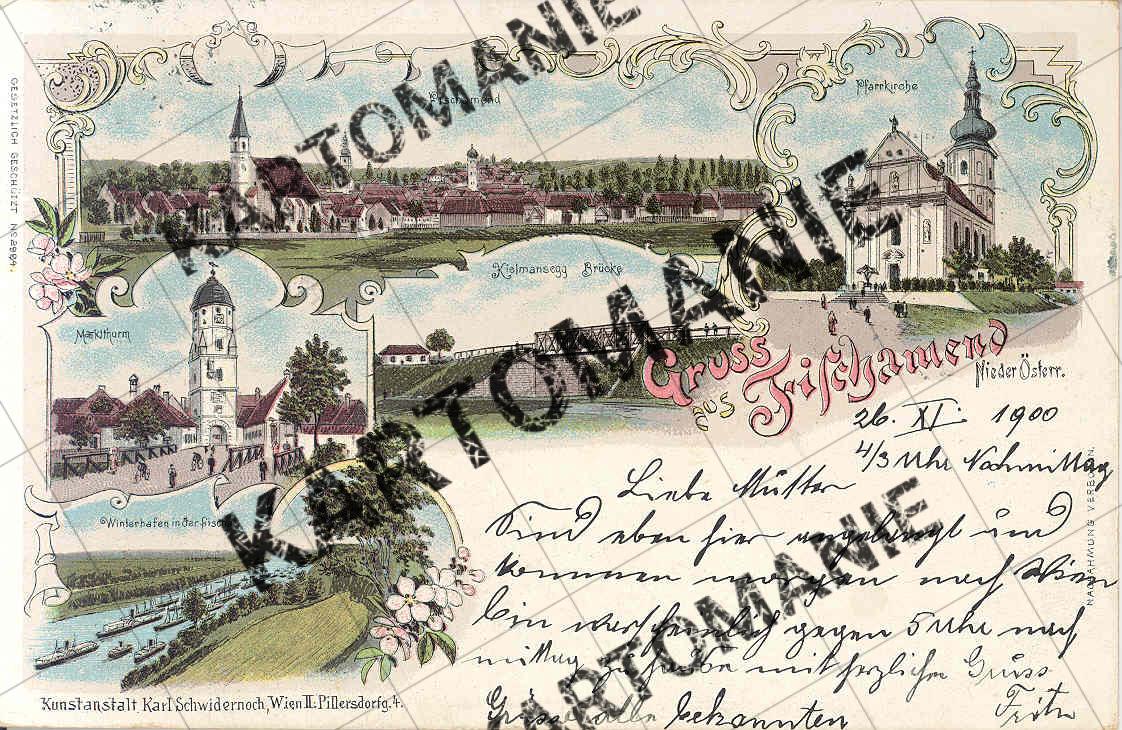 KARTOMANIE
Fischamend
Pfarrkirche
GESETZLICH GESCHÜTZT No
KARTOMANIE
Kielmansegg Brücke
Marktthurm
Gruss
aus Fischamend
Nieder Österr.
26. XI. 1900
4/3 Uhr Nachmittag
Liebe Mutter
Sind eben hier angelangt und
kommen morgen nach Wien
bin warscheinlich gegen 5 Uhr nach
mittag zu hause mit herzlichen Gruss
Grüsse alle bekannten
Fritz
KARTOMANIE
KARTOMANIE
Winterhafen in der
NACHAHMUNG VERBOTEN.
Kunstanstalt Karl Schwidernoch, Wien II. Pillersdorfg. 4.